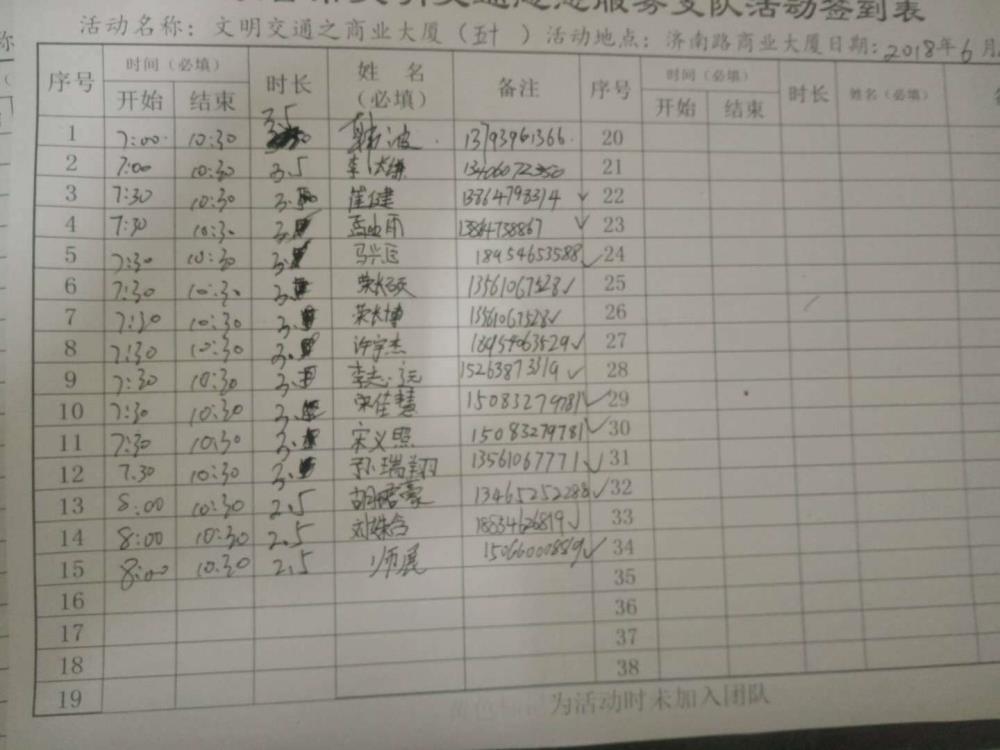 服务支队活动签到表
活动名称：文明交通之商业大厦（五十 ）活动地点：济南路商业大厦日期:2018年6月
序号 时间（必填） 时长 姓名（必填） 备注 序号 时间（必填） 时长 姓名（必填）
开始 结束 开始 结束
1 7:00 10:30 3.5 韩波 13793961366 20
2 7:00 10:30 3.5 李 21
3 7:30 10:30 3. 崔健 13864798314 ✓ 22
4 7:30 10:30 3. 13864738867 ✓ 23
5 7:30 10:30 3. 马兴 18954653588 ✓ 24
6 7:30 10:30 3. 荣 13561067528 ✓ 25
7 7:30 10:30 3. 荣 博 13561067528 ✓ 26
8 7:30 10:30 3. 许宇杰 ✓ 27
9 7:30 10:30 3. 李志远 15263873319 ✓ 28
10 7:30 10:30 3. 宋佳慧 15083279781 ✓ 29
11 7:30 10:30 3. 宋义照 15083279781 ✓ 30
12 7.30 10:30 3. 孙瑞翔 13561067771 ✓ 31
13 8:00 10:30 2.5 胡 豪 13465252288 ✓ 32
14 8:00 10:30 2.5 刘姝含 18834626819 ✓ 33
15 8:00 10:30 2.5 师展 ✓ 34
16 35
17 36
18 37
19 38
为活动时未加入团队